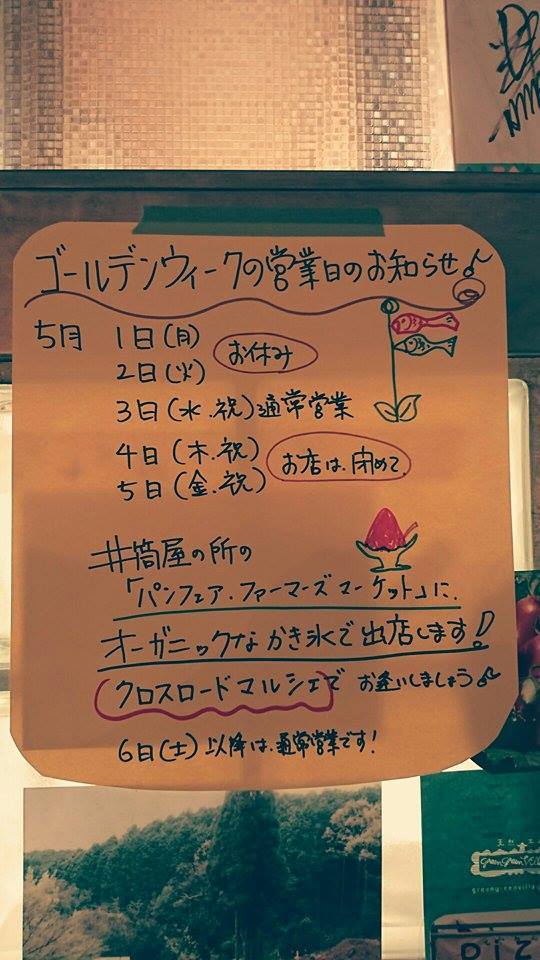 ゴールデンウィークの営業日のお知らせ♪
5月 1日(月)
2日(火) お休み
3日(水.祝)通常営業
4日(木.祝)
5日(金.祝) お店は、閉めて、
井筒屋の所の
「パンフェア.ファーマーズマーケット」に、
オーガニックなかき氷で出店します!
クロスロードマルシェで お逢いしましょう♪
6日(土)以降は、通常営業です!
green green